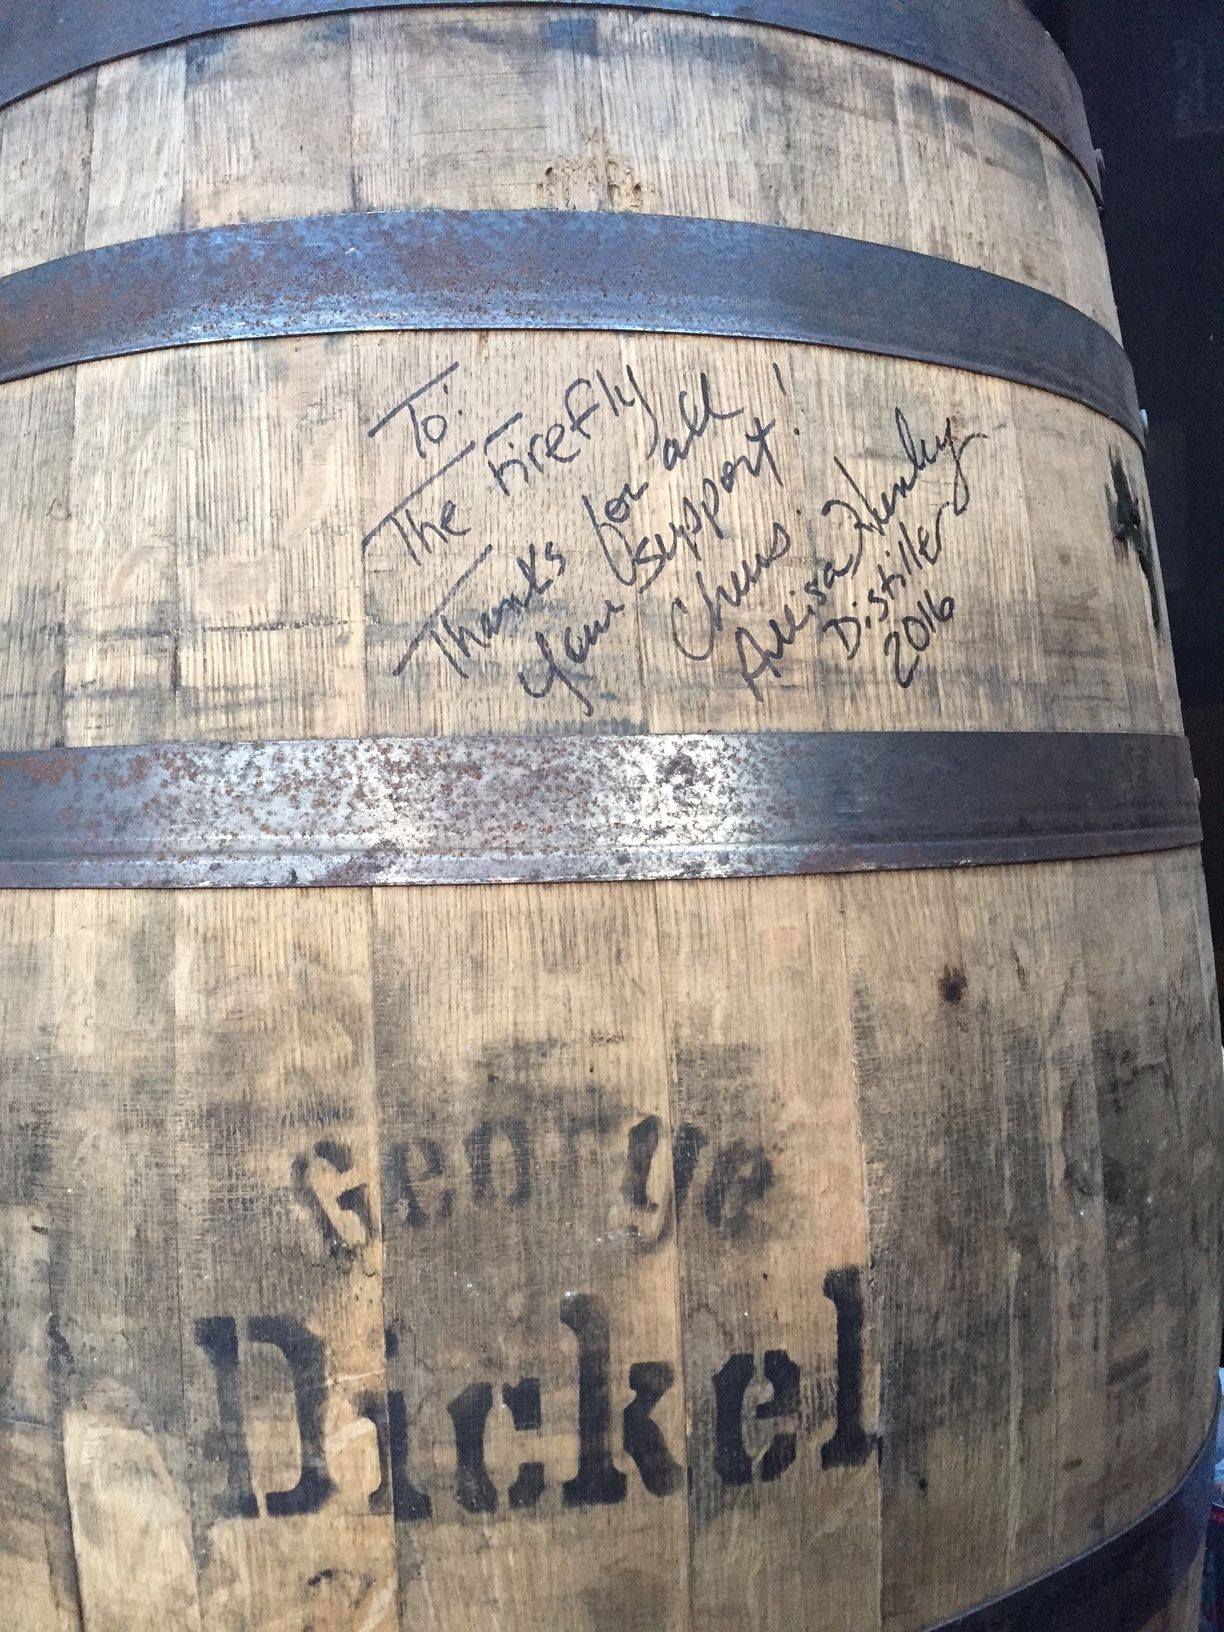 To:
The Firefly
Thanks for all
your support!
Cheers
Allisa Henley
Distiller
2016
George
Dickel